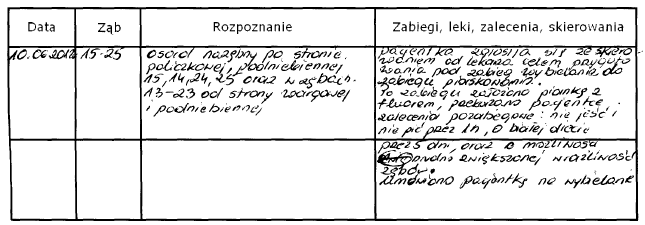 Data Ząb Rozpoznanie Zabiegi, leki, zalecenia, skierowania
10.06.2012 15-25
osad nazębny po stronie
policzkowej, podniebiennej
15,14,24,25 oraz w zębach
13-23 od strony wargowej
i podniebiennej
pacjentka zgłosiła się ze skiero
waniem od lekarza celem przygoto
wania pod zabieg wybielania do
zabiegu piaskowania.
Po zabiegu założono piankę z
fluorem, przekazano pacjentce
zalecenia pozabiegowe: nie jeść i
nie pić przez 1h, o białej diecie
przez 5 dni, oraz o możliwość
zwiększonej wrażliwość
zębów.
Umówiono pacjentkę na wybielanie